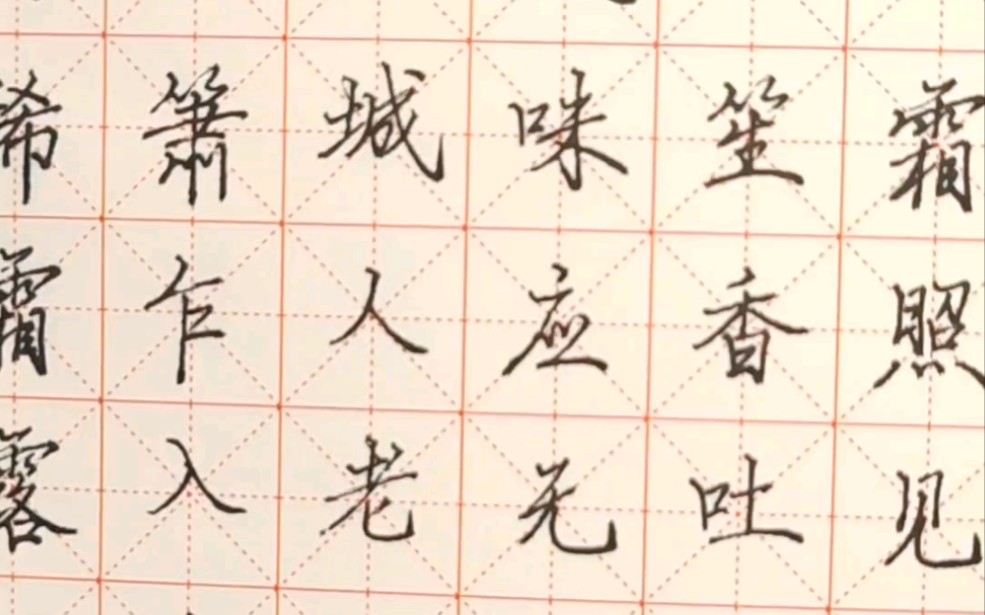 霜照见
笙香吐
味应无
城人老
箫乍入
霜露